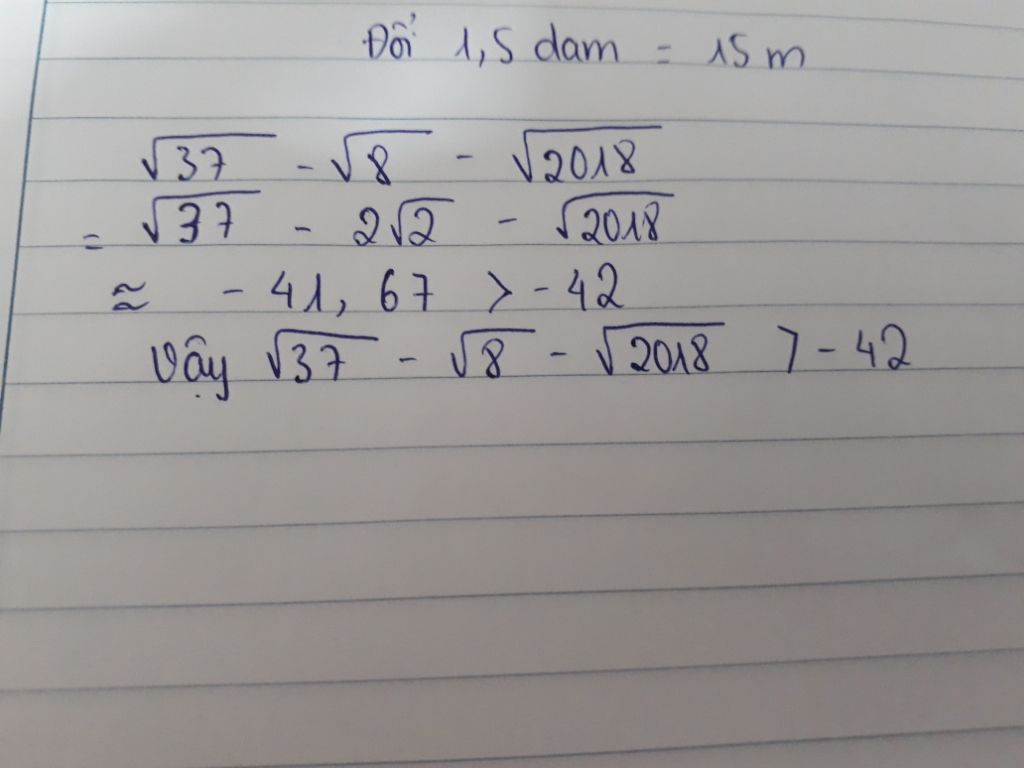 Đổi 1,5 dam = 15 m
√37 - √8 - √2018
= √37 - 2√2 - √2018
≈ - 41, 67 > - 42
Vậy √37 - √8 - √2018 > - 42